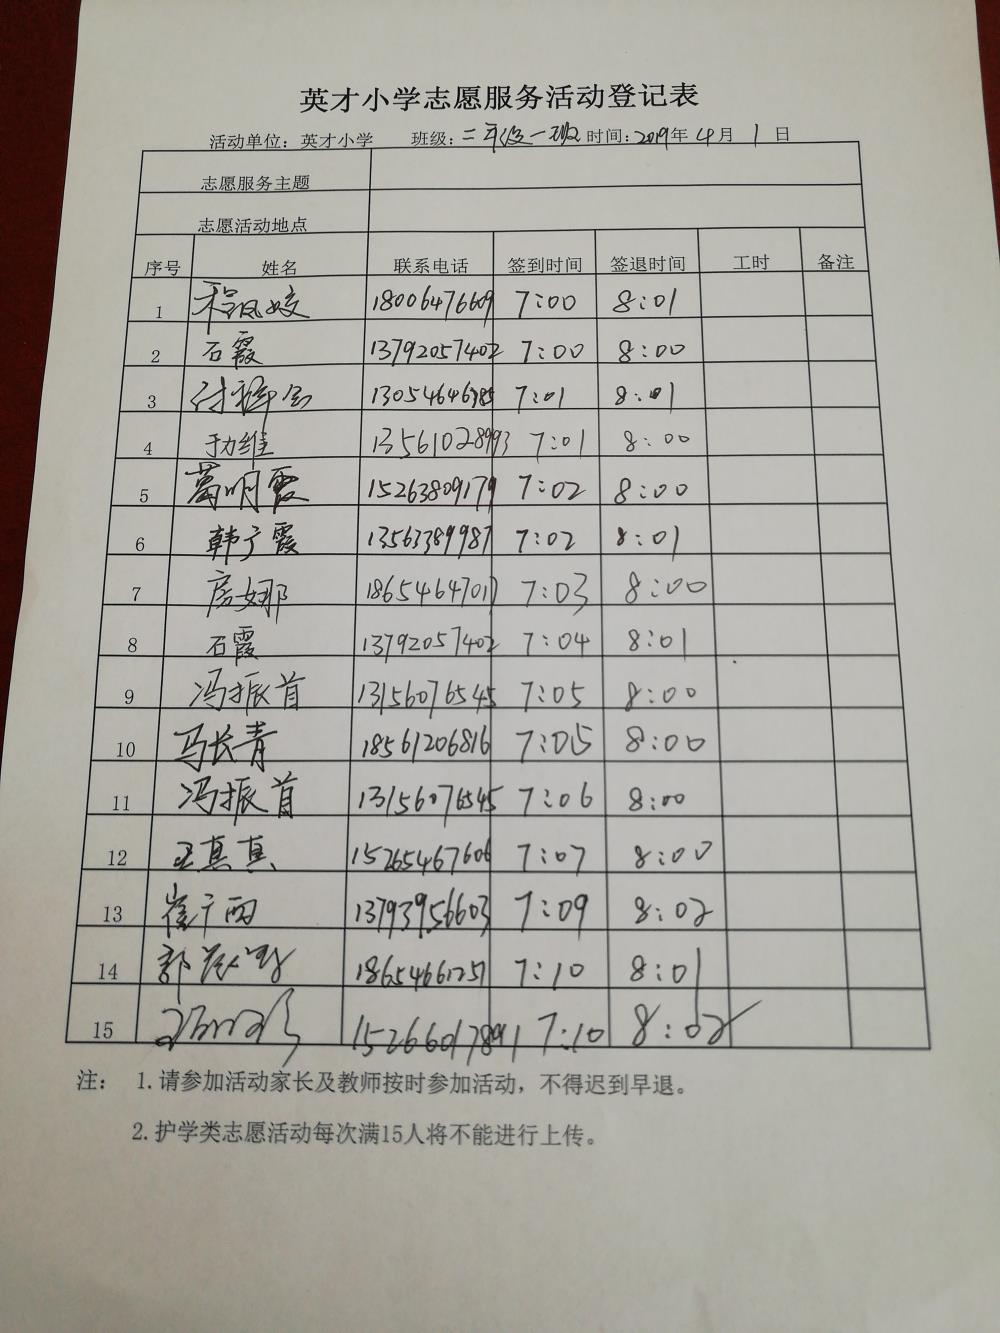 英才小学志愿服务活动登记表
活动单位：英才小学 班级：二年级一班 时间：2019年4月1日
志愿服务主题
志愿活动地点
序号 姓名 联系电话 签到时间 签退时间 工时 备注
1 18006476609 7:00 8:01
2 石霞 13792057402 7:00 8:00
3 13054646385 7:01 8:01
4 13561028993 7:01 8:00
5 葛明霞 15263809179 7:02 8:00
6 韩广霞 13563389987 7:02 8:01
7 房女那 18654647017 7:03 8:00
8 石霞 13792057402 7:04 8:01
9 冯振首 13156076545 7:05 8:00
10 马长青 18561206816 7:05 8:00
11 冯振首 13156076545 7:06 8:00
12 王真真 15265467606 7:07 8:00
13 13793956603 7:09 8:02
14 18654661257 7:10 8:01
15 15266017891 7:10 8:02
注： 1.请参加活动家长及教师按时参加活动，不得迟到早退。
2.护学类志愿活动每次满15人将不能进行上传。